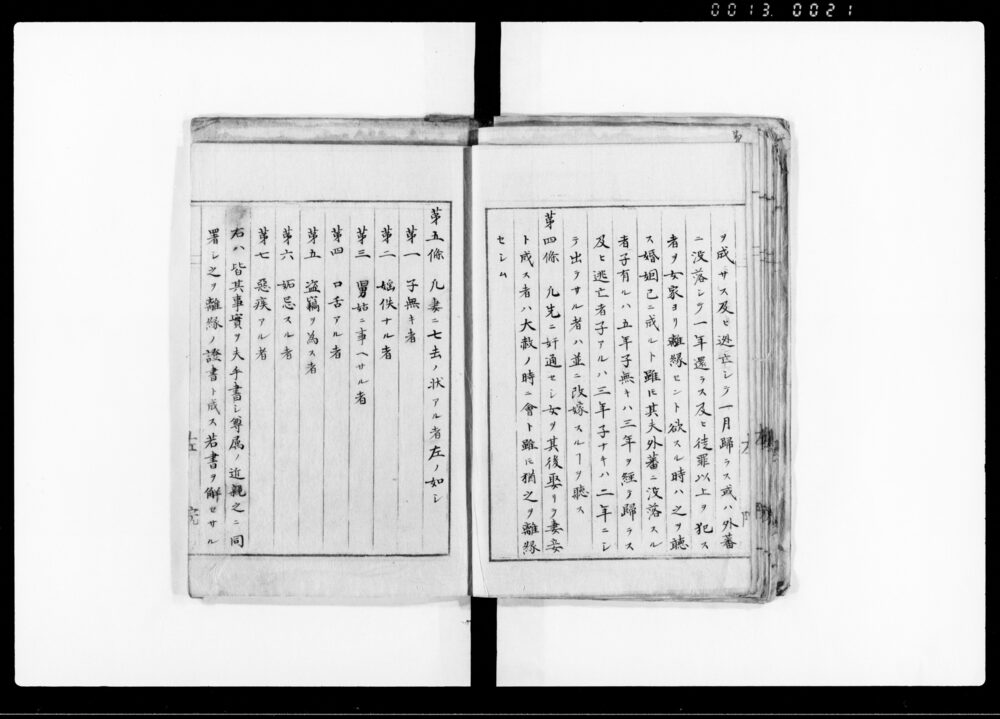 0013 0021
ヲ成サス及ヒ逃亡シテ一月歸ラス或ハ外蕃
ニ没落シテ一年還ラス及ヒ徒罪以上ヲ犯ス
者ヲ女家ヨリ離縁セント欲スル時ハ之ヲ聴
ス婚姻已ニ成ルト雖𪜈其夫外蕃ニ没落スル
者子有ルハ五年子無キハ三年ヲ經テ歸ラス
及ヒ逃亡者子アルハ三年子ナキハ二年ニシ
テ出テサル者ハ並ニ改嫁スルヿヲ聴ス
第四條 凡先ニ奸通セシ女ヲ其後娶リテ妻妾
ト成ス者ハ大赦ノ時ニ會ト雖𪜈猶之ヲ離縁
セシム
第五條 凡妻ニ七去ノ状アル者左ノ如シ
第一 子無キ者
第二 婬佚ナル者
第三 舅姑ニ事ヘサル者
第四 口舌アル者
第五 盗竊ヲ為ス者
第六 妬忌スル者
第七 惡疾アル者
右ハ皆其事實ヲ夫手書シ尊属ノ近親之ニ同
署シ之ヲ離縁ノ證書ト成ス若書ヲ解セサル